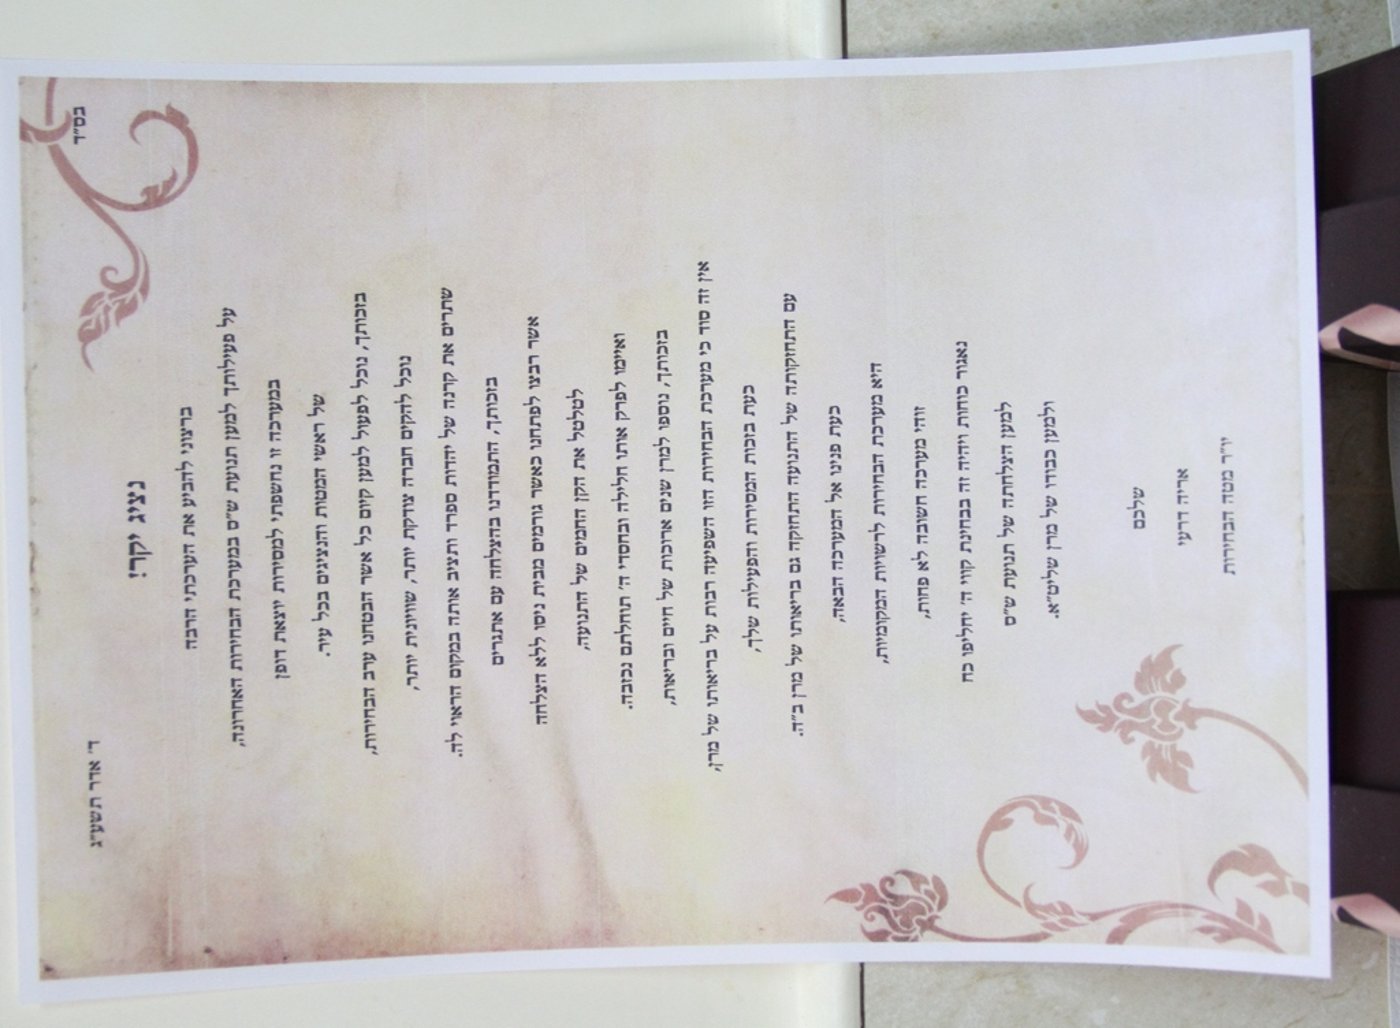 בס"ד
ד' אדר תשע"ג
נציג יקר!
ברצוני להביע את הערכתי הרבה
על פעילותך למען תנועת ש"ס במערכת הבחירות האחרונה,
במערכה זו נחשפתי למסירות יוצאת דופן
של ראשי המטות והנציגים בכל עיר.
בזכותך, נוכל לפעול למען קיום כל אשר הבטחנו ערב הבחירות,
נוכל להקים חברה צודקת יותר, שוויונית יותר,
שתרים את קרנה של יהדות ספרד ותציב אותה במקום הראוי לה.
בזכותך, התמודדנו בהצלחה עם אתגרים
אשר רבצו לפתחנו כאשר גורמים מבית ניסו ללא הצלחה
לטלטל את הקן החמים של התנועה,
ואיימו לפרק אותו חלילה ובחסדי ה' תוחלתם נכזבה.
בזכותך, נוספו למרן שנים ארוכות של חיים ובריאות,
אין זה סוד כי מערכת הבחירות הזו השפיעה רבות על בריאותו של מרן,
כעת בזכות המסירות והפעילות שלך,
עם התחזקותה של התנועה התחזקה גם בריאותו של מרן ב"ה.
כעת פנינו אל המערכה הבאה,
היא מערכת הבחירות לרשויות המקומיות,
זוהי מערכה חשובה לא פחות,
נאגור כוחות ויהיה זה בבחינת קווי ה' יחליפו כח
למען הצלחתה של תנועת ש"ס
ולמען כבודו של מרן שליט"א.
שלכם
אריה דרעי
יו"ר מטה הבחירות